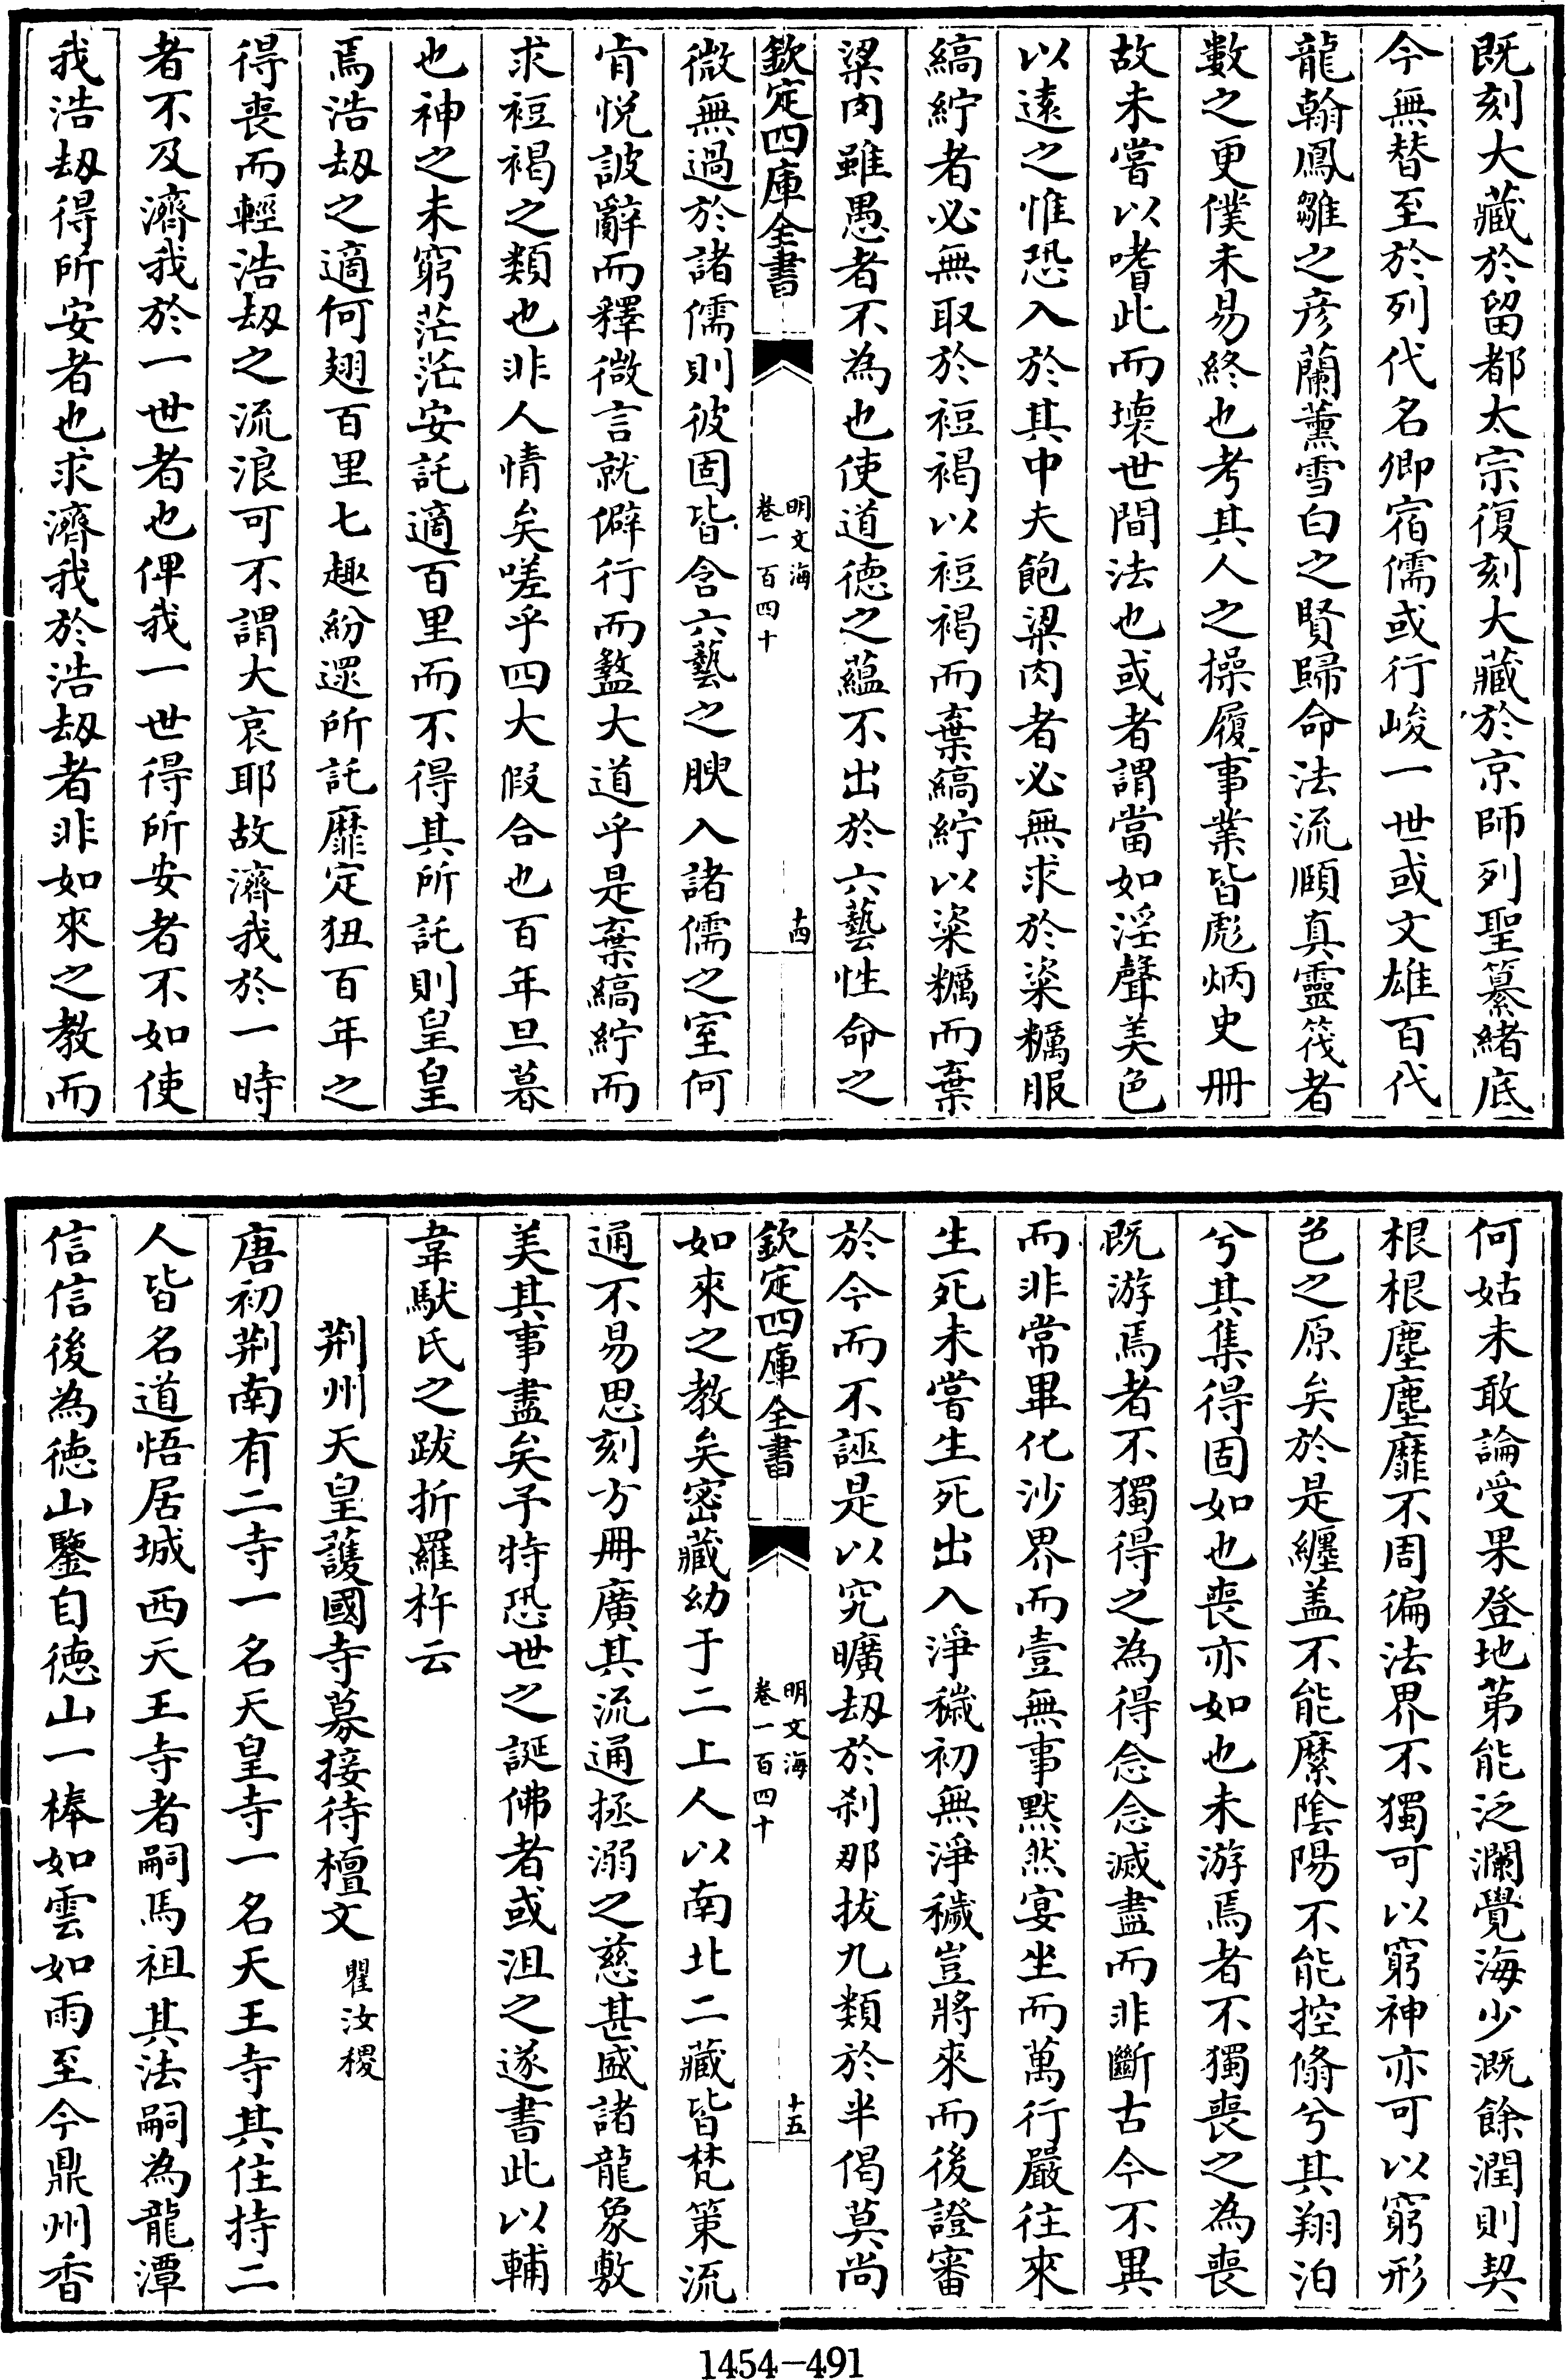 既刻大藏於留都太宗復刻大藏於京師列聖纂緒底
今無替至於列代名卿宿儒或行峻一世或文雄百代
龍翰鳳雛之彦蘭薰雪白之賢歸命法流頤真靈筏者
數之更僕未易終也考其人之操履事業皆彪炳史冊
故未嘗以嗜此而壞世間法也或者謂當如淫聲美色
以遠之惟恐入於其中夫飽粱肉者必無求於粢糲服
縞紵者必無取於裋褐以裋褐而棄縞紵以粢糲而棄
粱肉雖愚者不為也使道徳之蘊不出於六藝性命之
欽定四庫全書
明文海
卷一百四十
十四
微無過於諸儒則彼固皆含六藝之腴入諸儒之室何
肯悦詖辭而釋微言就僻行而盭大道乎是棄縞紵而
求裋褐之類也非人情矣嗟乎四大假合也百年旦暮
也神之未窮茫茫安託適百里而不得其所託則皇皇
焉浩刼之適何翅百里七趣紛還所託靡定狃百年之
得喪而輕浩刼之流浪可不謂大哀耶故濟我於一時
者不及濟我於一世者也俾我一世得所安者不如使
我浩刼得所安者也求濟我於浩刼者非如來之教而
何姑未敢論受果登地第能泛瀾覺海少溉餘潤則契
根根塵塵靡不周徧法界不獨可以窮神亦可以窮形
色之原矣於是纒盖不能縻隂陽不能控翛兮其翔泊
兮其集得固如也喪亦如也未游焉者不獨喪之為喪
既游焉者不獨得之為得念念滅盡而非斷古今不異
而非常畢化沙界而壹無事黙然宴坐而萬行嚴往來
生死未嘗生死出入淨穢初無淨穢豈將來而後證審
於今而不誣是以究曠刼於刹那拔九類於半偈莫尚
欽定四庫全書
明文海
卷一百四十
十五
如來之教矣密藏幼于二上人以南北二藏皆梵筴流
通不易思刻方冊廣其流通拯溺之慈甚盛諸龍象敷
美其事盡矣予特恐世之誕佛者或沮之遂書此以輔
韋馱氏之跋折羅杵云
荆州天皇護國寺募接待檀文 瞿汝稷
唐初荆南有二寺一名天皇寺一名天王寺其住持二
人皆名道悟居城西天王寺者嗣馬祖其法嗣為龍潭
信信後為徳山鑒自徳山一棒如雲如雨至今鼎州香
1454-491